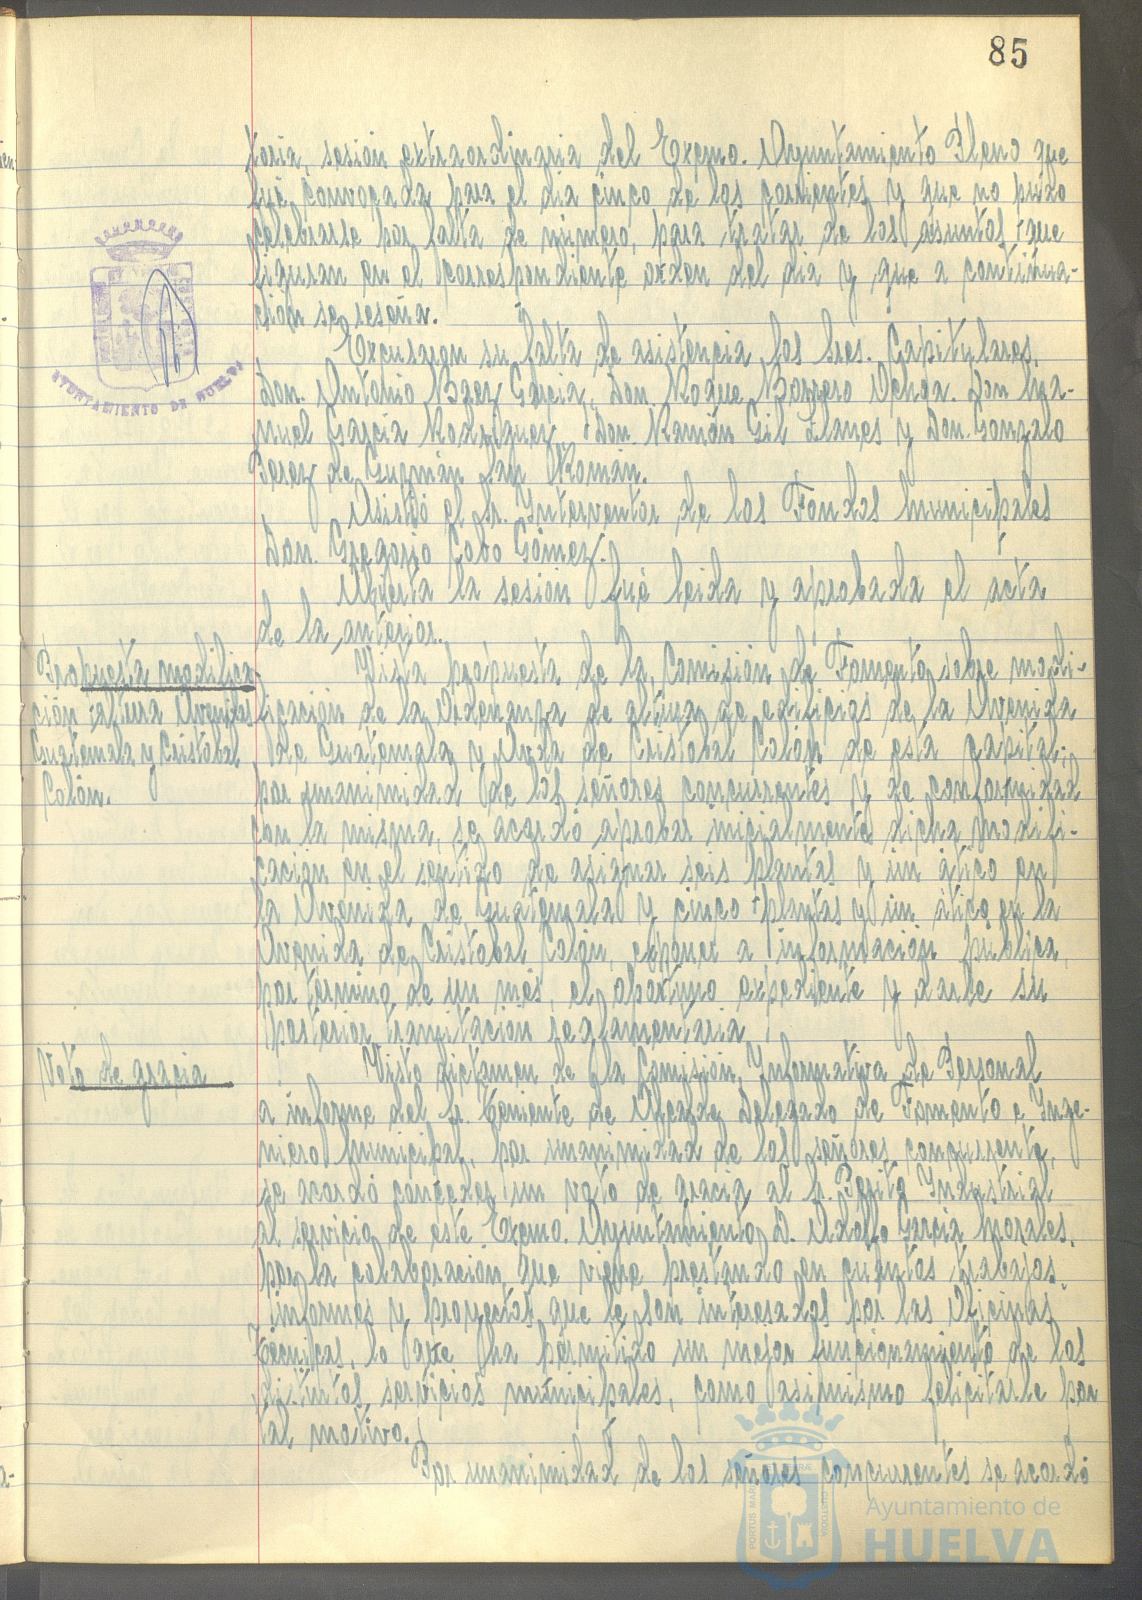 85
toria, sesión extraordinaria del Excmo. Ayuntamiento Pleno que
fué convocada para el dia cinco de los corrientes y que no pudo
celebrarse por falta de número, para tratar de los asuntos que
figuran en el correspondiente orden del dia y que a continua-
ción se reseña.
Excusaron su falta de asistencia los Sres. Capitulares,
Don. Antonio Baez Garcia, Don. Roque Borrero Ochoa. Don Ma-
nuel Garcia Rodriguez, Don. Ramón Gil Llanes y Don. Gonzalo
Perez de Guzmán San Román.
Asistió el Sr. Interventor de los Fondos Municipales
Don. Gregorio Cobo Gómez.
Abierta la sesión fué leida y aprobada el acta
de la anterior.
Propuesta modifica
ción altura Avenidas
Guatemala y Cristobal
Colón.
Vista propuesta de la Comisión de Fomento sobre modi-
ficación de la Ordenanza de altura de edificios de la Avenida
de Guatemala y Avda de Cristobal Colón de esta capital;
por unanimidad de los señores concurrentes y de conformidad
con la misma, se acordó aprobar inicialmente dicha modifi-
cación en el sentido de asignar seis plantas y un ático en
la Avenida de Guatemala y cinco plantas y un ático en la
Avenida de Cristobal Colón, exponer a información pública,
por termino de un mes, el oportuno expediente y darle su
posterior tramitación reglamentaria.
Voto de gracia
Visto dictamen de la Comisión Informativa de Personal
a informe del Sr. Teniente de Alcalde Delegado de Fomento e Inge-
niero Municipal, por unanimidad de los señores concurrente,
se acordó conceder un voto de gracia al Sr. Perito Industrial
al servicio de este Excmo. Ayuntamiento D. Adolfo Garcia Morales,
por la colaboración que viene prestando en cuantos trabajos,
informes y proyectos que le son interesados por las Oficinas
Técnicas, lo que ha permitido un mejor funcionamiento de los
distintos servicios municipales, como asimismo felicitarle por
tal motivo.
Por unanimidad de los señores concurrentes se acordó
AYUNTAMIENTO DE HUELVA
Ayuntamiento de
HUELVA